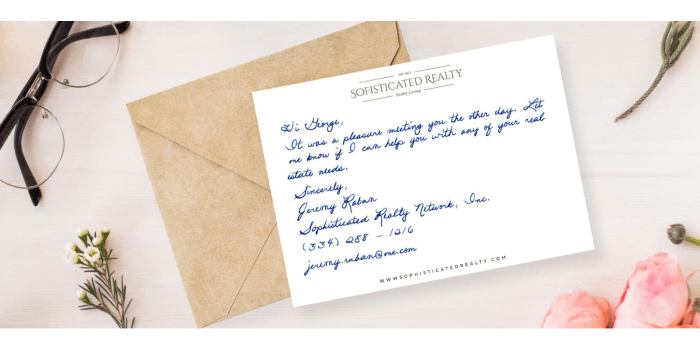 SOFISTICATED REALTY
Realty Group
Hi George,
It was a pleasure meeting you the other day. Let
me know if I can help you with any of your real
estate needs.
Sincerely,
Jeremy Raban
Sophisticated Realty Network, Inc.
(334) 288 - 1216
jeremy.raban@me.com
WWW.SOPHISTICATEDREALTY.COM